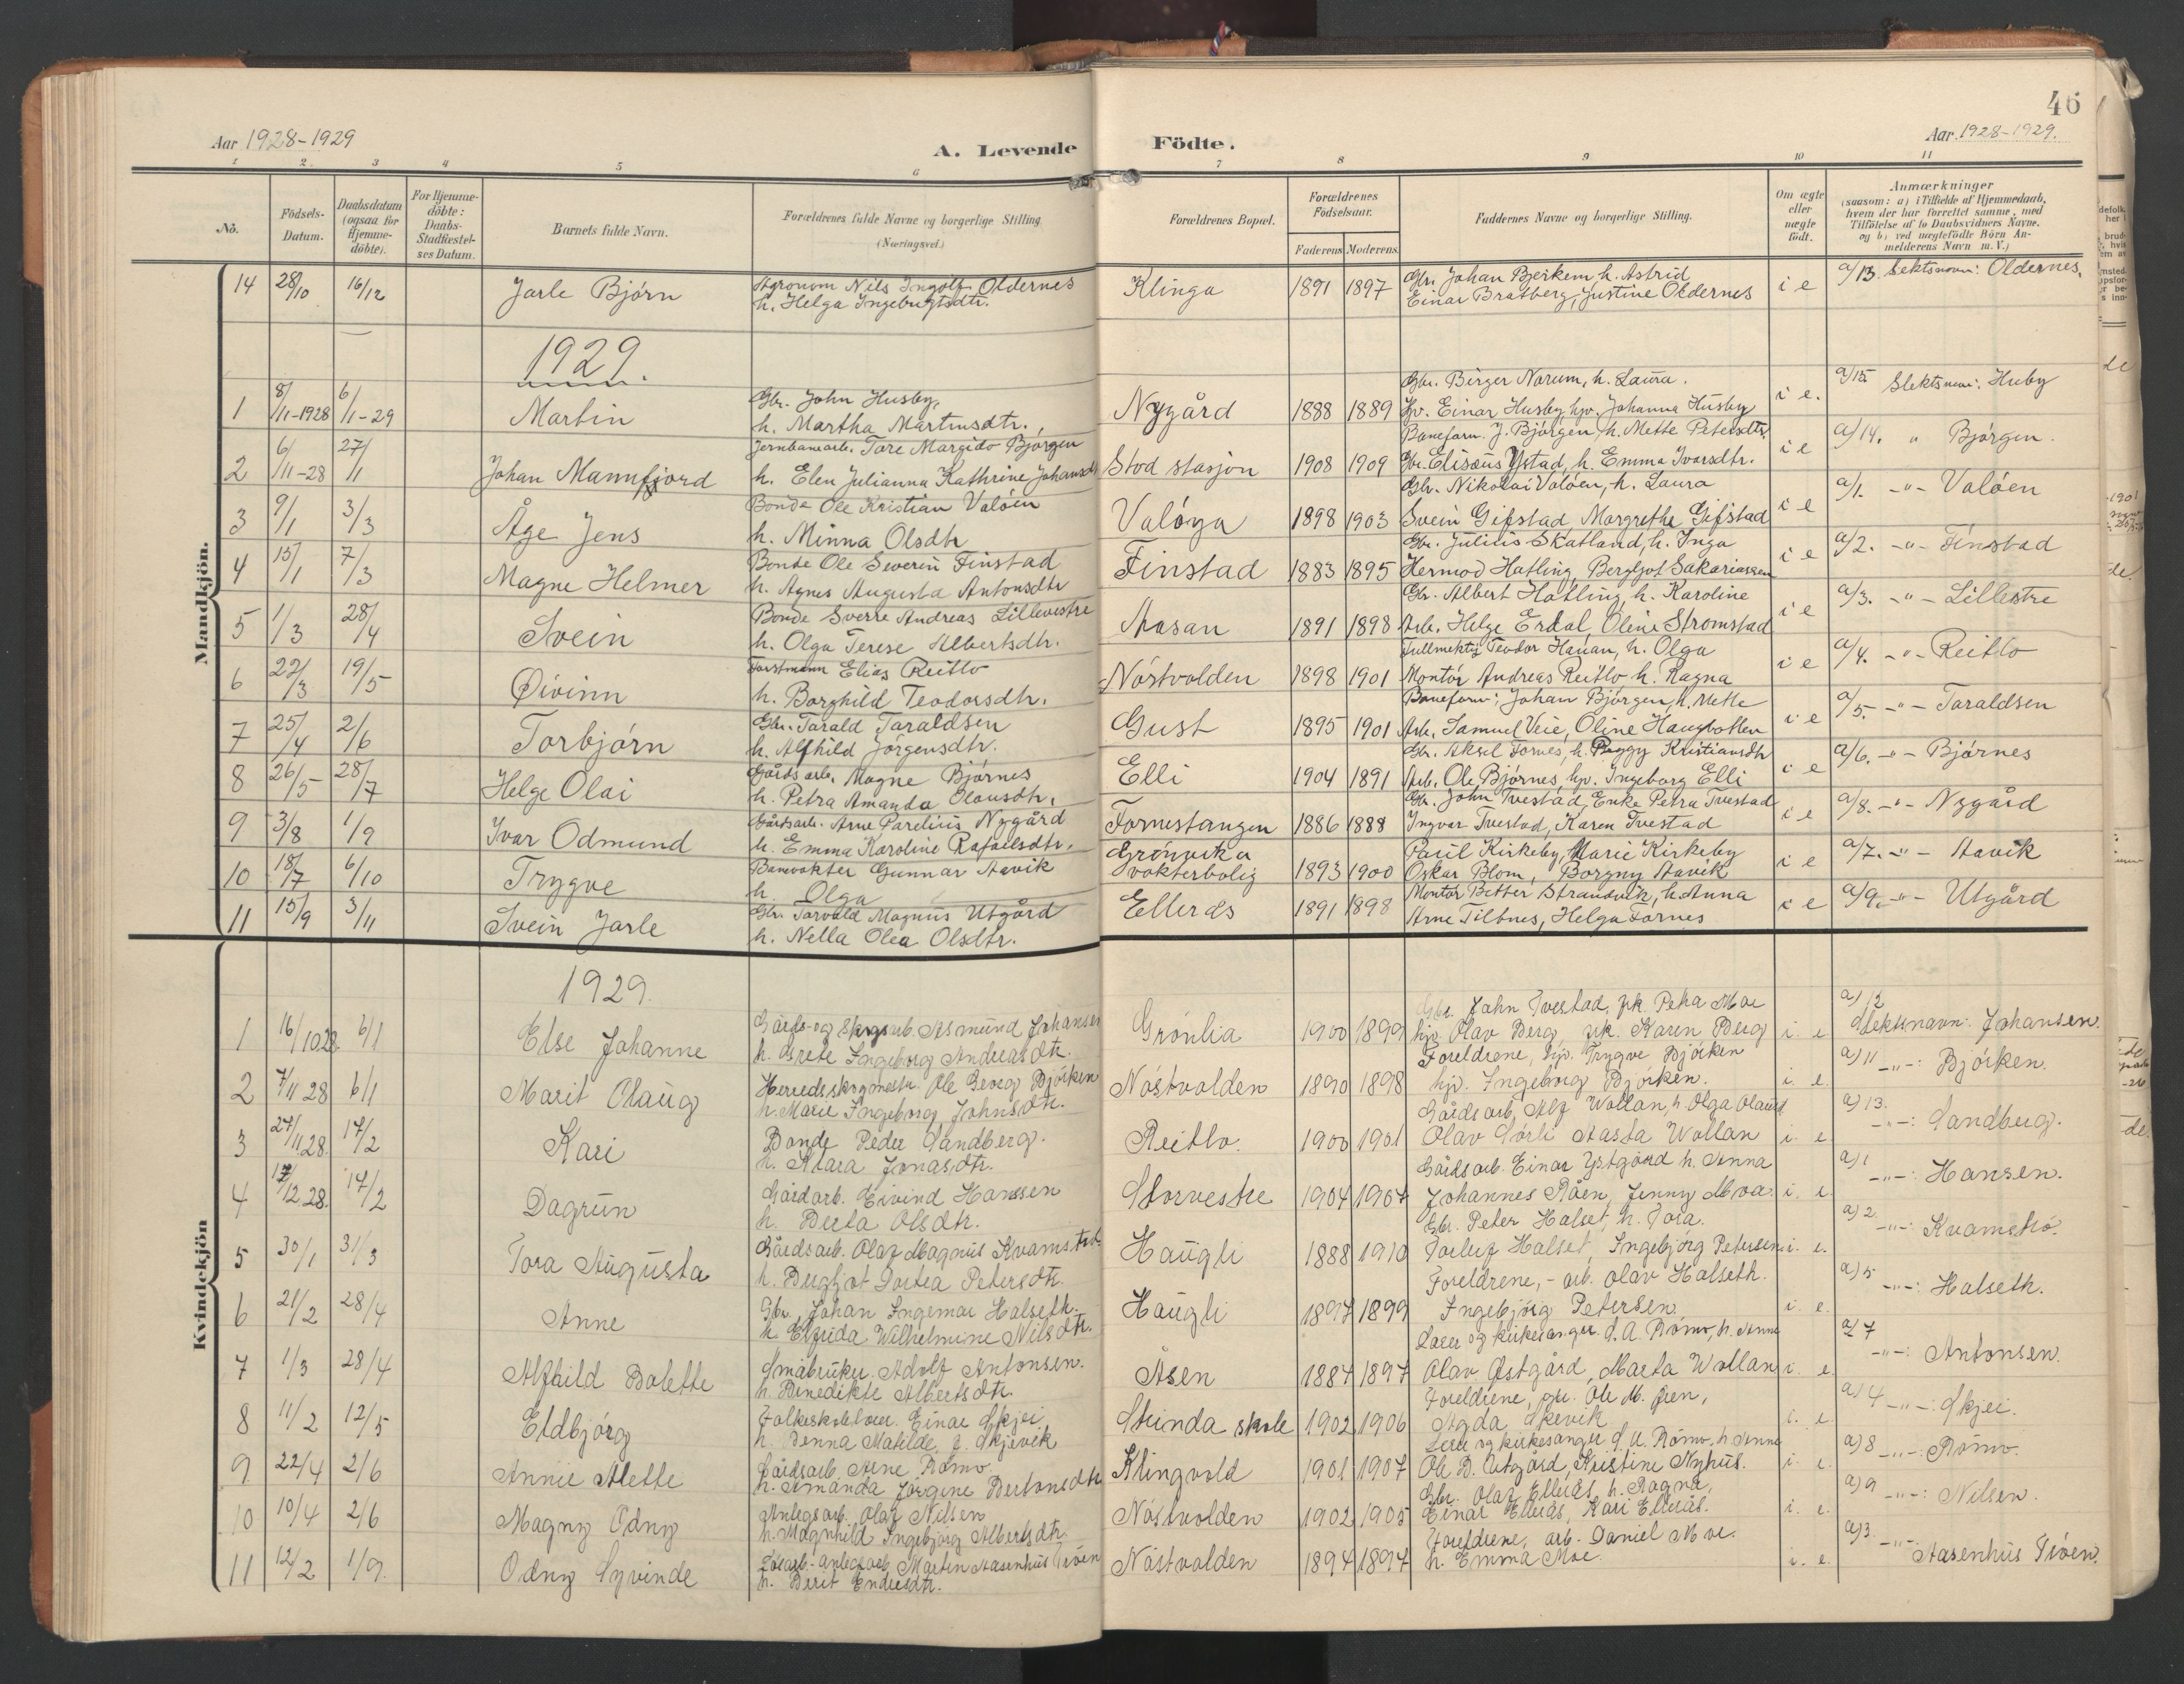 46
Aar 1928-1929
A. Levende
Födte.
Aar 1928-1929.
1 2. 3 4 5 6 7 8 9 10 11
No.
Födsels-Datum.
Daabsdatum (ogsaa for Hjemmedöbte).
For Hjemmedöbte: Daabs-Stadfæstelses Datum.
Barnets fulde Navn.
Forældrenes fulde Navne og borgerlige Stilling (Næringsvei.)
Forældrenes Bopæl.
Forældrenes Födselsaar.
Faderens Moderens
Faddernes Navne og borgerlige Stilling.
Om ægte eller uægte födt.
Anmærkninger
(saasom: a) i Tilfælde af Hjemmedaab, hvem der har forrettet samme, med Tilföielse af to Daabsvidners Navne. og b) ved uægtefödte Börn Anmelderens Navn m. V.)
Mandkjön.
14 28/10 16/12 Jarle Bjórn Agronom Nils Ingolf Oldernes
h. Helga Ingebrigtsdtr. Klinga 1891 1897 Gbr. Johan Bjerkem h. Astrid
Einar Bratberg, Justine Oldernes i e a/13. Slektsnavn: Oldernes.
1929.
1 8/11-1928 6/1-29 Martin Gbr. John Husby,
h. Martha Martinsdtr. Nygård 1888 1889 Gbr. Birger Norum, h. Laura.
Gbr. Einar Husby, hjv. Johanna Husby i e. a/15. Slektsnavn: Huby
2 6/11-28 27/1 Johan Mannfjord Jernbanearb. Tore Margido Bjórgen
h. Elen Julianna Kathrine Johansdt Stod stasjon 1908 1909 Baneform. J. Bjórgen, h. Mette Petersdtr.
Gbr. Elisæus Ystad, h. Emma Ivarsdtr. i e a/14. " Bjórgen.
3 9/1 3/3 Åge Jens Bonde Ole Kristian Valóen
h. Minna Olsdtr Valóya 1898 1903 Gbr. Nikolai Valóen, h. Laura
Svein Gifstad, Margrethe Gifstad i e a/1. -"- Valóen
4 15/1 7/3 Magne Helmer Bonde Ole Severin Finstad
h. Agnes Augusta Antonsdtr Finstad 1883 1895 Gbr. Julius Skatland, h. Inga
Hermod Hatling, Bergljot Sakariassen i e a/2. -"- Finstad
5 1/3 28/4 Svein Bonde Sverre Andreas Lillevestre
h. Olga Terese Albertsdtr. Aasan 1891 1898 Gbr. Albert Hatling, h. Karoline
Arb. Helge Erdal, Oline Stromstad i e a/3. -"- Lillestre
6 22/3 19/5 Øivinn Forstmann Elias Reitlo
h. Borghild Teodorsdtr. Nóstvolden 1898 1901 Fullmektig Teodor Hauan, h. Olga
Montór Andreas Reitlo h. Ragna i e a/4. -"- Reitlo
7 25/4 2/6 Torbjórn Gbr. Tarald Taraldsen
h. Alfhild Jórgensdtr. Gust 1895 1901 Baneform: Johan Bjórgen, h. Mette
Arb. Samuel Veie, Oline Haugbotten i e a/5. -"- Taraldsen
8 26/5 28/7 Helge Olai Gårdsarb. Magne Bjórnes
h. Petra Amanda Olausdtr. Elli 1904 1891 Gbr. Aksel Fornes, h. Peggy Kristiansdtr
Arb. Ole Bjórnes, hjv. Ingeborg Elli i e a/6. -"- Bjórnes
9 3/8 1/9 Ivar Odmund Gårdsarb. Arne Parelius Nygård
h. Emma Karoline Rafaelsdtr. Fornestangen 1886 1888 Gbr. John Tvestad, Enke Petra Tvestad
Ingvar Tvestad, Karen Tvestad i e a/8. -"- Nygård
10 18/7 6/10 Trygve Banevokter Gunnar Aavik
h. Olga Grónvika vokterbolig 1893 1900 Paul Kirkeby, Marie Kirkeby
Oskar Blom, Borgny Aavik i e a/7. -"- Aavik
11 15/9 3/11 Svein Jarle Gbr. Torvald Magnus Utgård
h. Nella Olea Olsdtr. Ellerås 1891 1898 Montór Petter Strandvik, h. Anna
Arne Tiltnes, Helga Fornes i e a/9. -"- Utgård
Kvindekjön
1929.
1 16/10 28. 6/1 Else Johanne Gårds- og Skogsarb. Asmund Johansen
h. Grete Ingeborg Andreasdtr. Grónlia 1900 1899 Gbr. John Tvestad, frk. Petra Moe
hjv. Olav Berg, frk. Karen Berg i. e a) 12 Slektsnavn: Johansen.
2 7/11 28 6/1 Marit Olaug Herredsskogmestr. Ole Georg Bjórken
h. Marie Ingeborg Johnsdtr. Nóstvolden 1890 1898 Foreldrene, hjv. Trygve Bjórken
hjv. Ingeborg Bjórken. i. e. a) 11 -"-: Bjórken.
3 27/11 28. 17/2 Kari Bonde Peder Sandberg.
h. Klara Jonasdtr. Reitlo. 1900 1901 Gårdsarb. Alf Wollan, h. Olga Olausd
Olav Sórli Aasta Wollan i. e. a) 13. -"-: Sandberg.
4 17/12 28. 17/2 Dagrun Gårdarb. Eivind Hanssen
h. Berta Olsdtr. Storvestre 1904 1907 Gårdsarb. Einar Ystgård h. Anna
Johannes Råen, Jenny Moa. i. e. a) 1 -"-: Hansen.
5 30/1 31/3 Tora Augusta Gårdsarb. Olaf Magnus Kvamstró
h. Bergljot Dortea Petersdtr. Haugli 1888 1910 Gbr. Peter Halset, h. Tora.
Torleif Halset, Ingebjórg Petersen i. e. a) 2 -"-: Kvamstró.
6 21/2 28/4 Anne Gbr. Johan Ingemar Halseth.
h. Elfrida Wilhelmine Nilsdtr. Haugli 1897 1899 Foreldrene, - arb. Olav Halseth.
Ingebjórg Petersen. i. e. a) 5 -"-: Halseth.
7 1/3 28/4 Alfhild Bolette Småbruker. Adolf Antonsen.
h. Benedikte Albertsdtr. Åsen 1884 1897 Lærer og kirkesanger. S. A. Rómo, h. Anne
Olav Østgård, Marta Wollan i. e. a) 7 -"-: Antonsen.
8 11/2 12/5 Eldbjórg Folkeskolelærer. Einar Skjei
h. Benna Matilde, f. Skjevik Steinda skole 1902 1906 Foreldrene, gbr. Ole M. ,
Agda Skevik i. e. a) 4 -"-: Skjei.
9. 22/4 2/6 Annie Alette Gårdsarb. Arne Rómo
h. Amanda Jórgine Bertonsdtr Klingvold 1901 1907 Lærer og kirkesanger S. A. Rómo, h. Anne
Ole D. Østgård, Kristine Nyhus. i. e. a) 8 -"-: Rómo.
10 10/4 2/6 Magny Odny Anlegsarb. Olaf Nilsen
h. Magnhild Ingebjórg Albertsdtr. Nóstvolden 1902 1905 Gbr. Olaf Ellerås, h. Ragna,
Einar Ellerås, Kari Ellerås. i. e. a) 9 -"-: Nilsen.
11 12/2 1/9. Odny Syvinde anlegsarb. Martin Aasenhus
h. Berit Endresdtr. Nóstvolden 1894 1897 Foreldrene, arb. Daniel Moe.
h. Emma Moe. i. e. a) 3 -"- Aasenhus